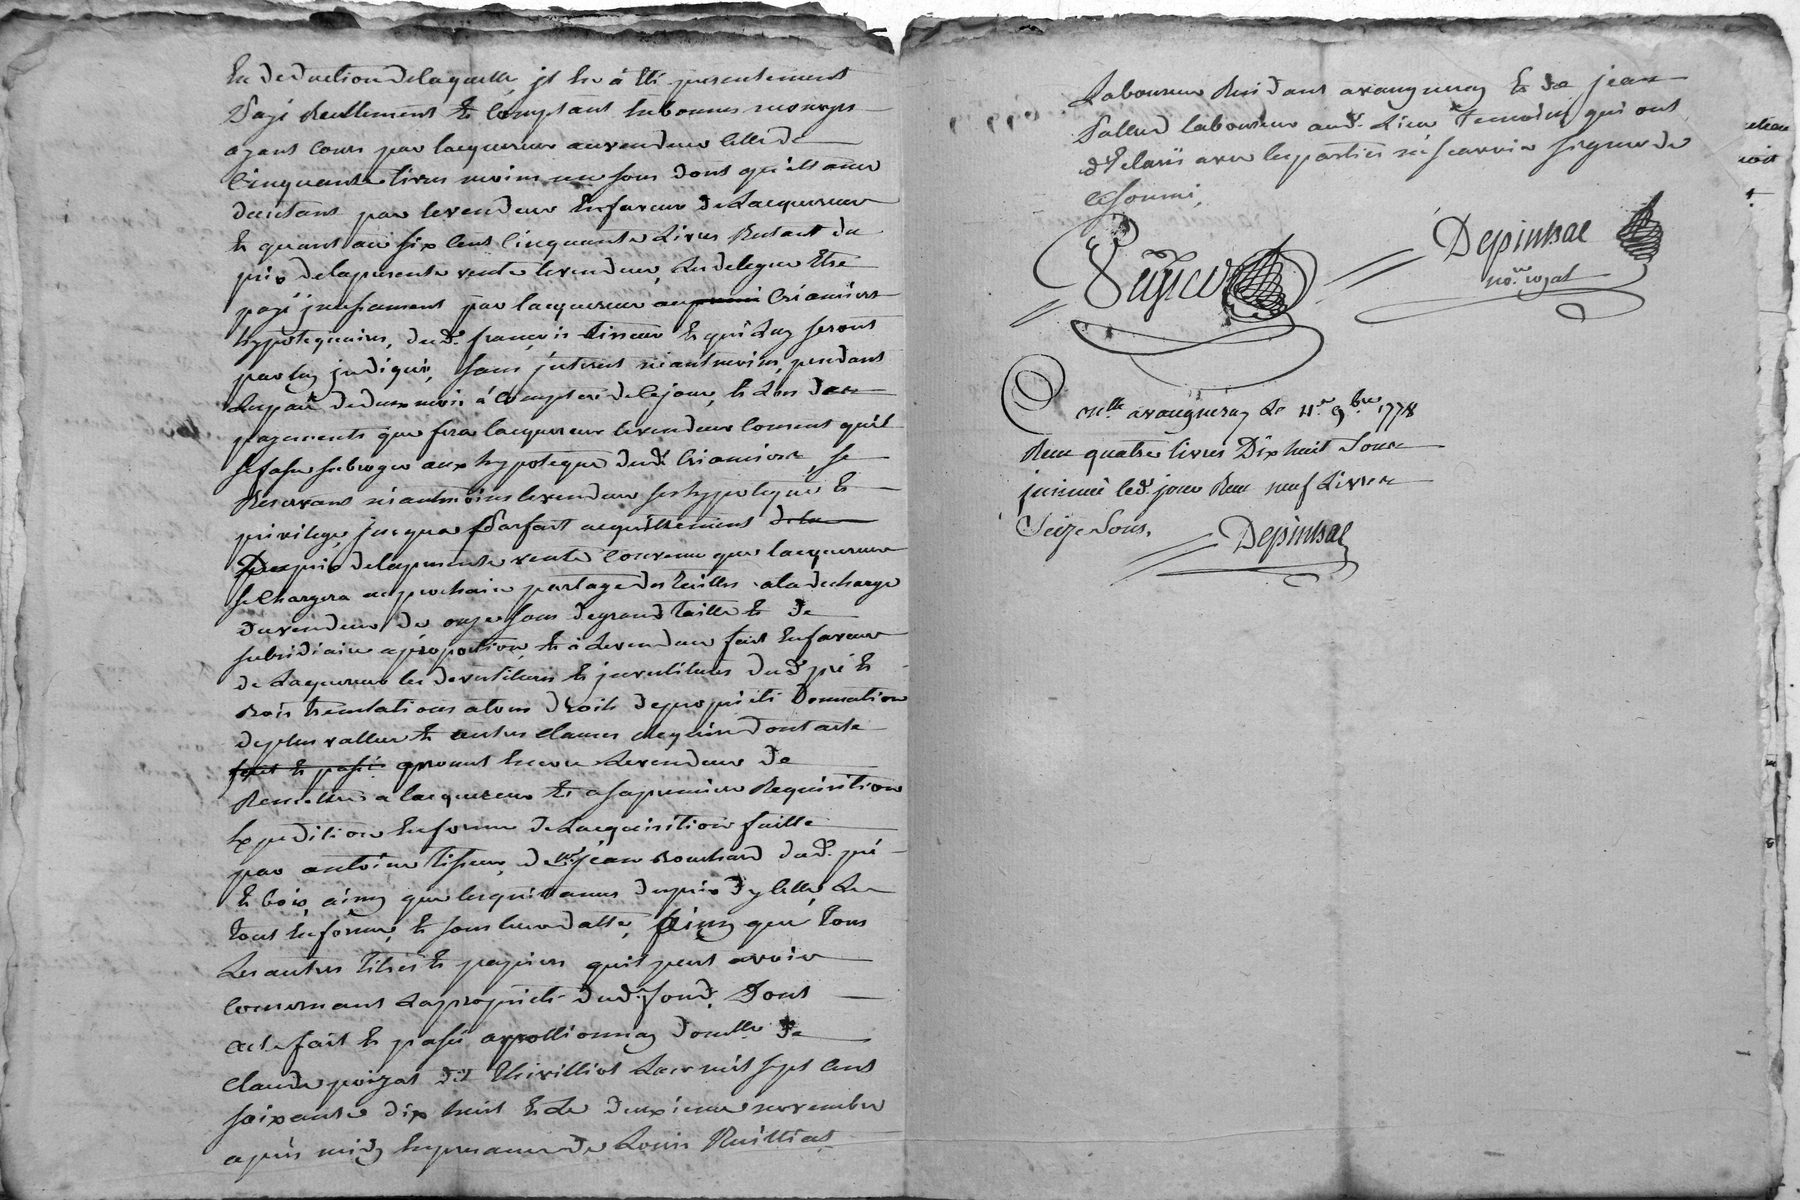 En deduction de laquelle, jl En à Eté presentement
payé Reellement Et Comptant En bonnes monoyes
ayant Cours par lacquereur au vendeur Celle de
Cinquante livres moins un sous dont quittance
par le vendeur En faveur de Lacquereur
Et quant au six Cent Cinquante Livres Restant du
prix de la presente vente le vendeur, Les delegue Etre
payé par lacquereur Créanciers
hypotequaires, dud. françois tisseur Et qui Luy seront
par luy jndiqué, sans jnterest néantmoins, pendant
de deux mois à Compter de Ce jour, Et Lors des
payements que fera lacquereur le vendeur Consent qu'il
se fasse subroger aux hypoteque dud. Créanciers, se
Reservant néantmoins le vendeur ses hypoteque Et
privilege, jusqua parfait acquittement de la
prix de la presente vente Convenu que lacquereur
se Chargera au prochain partage des tailles a la decharge
du vendeur de onze sous de grand taille Et de
subsidiaire a proportion, Et à Le vendeur fait En faveur
de Lacquereur les devestitures Et jnvestitures dud. pré Et
Bois translations a tous droits de proprieté Donnation
de plus vallue Et autres clauses requises dont acte
fait Et passé promet Encore Le vendeur de
Remettre a lacquereur Et a sa premiere Requisition
Expedition En forme de Lacquisition faitte
par antoine tisseur, de jean Bouchard dud. pré
Et bois, ainsy que les quittances du prix d'ycelle, Le
tout En forme, Et sous leur datte, ainsy que tous
Les autres titres Et papiers quil peut avoir
Concernant La proprieté dud. fond. Dont
acte fait Et passé a pollionnay domille de
Claude poizat dit Thivilliot Lan mil sept Cent
soixante dix huit Et Le deuxieme novembre
apres midy En presence de Louis Ruilliat
Laboureur Residant a vaugneray Et de jean
laboureur aud. Lieu temoins qui ont
declaré avec les parties ne scavoir signer de
Ce sommé.
Depinssac
no.re royal
Con.llé a vaugneray Le 11.e 9.bre 1778
Reçu quatre livres Dix huit Sous
jnsinué led. jour Reçu neuf Livres
Seize Sous.
Depinssac